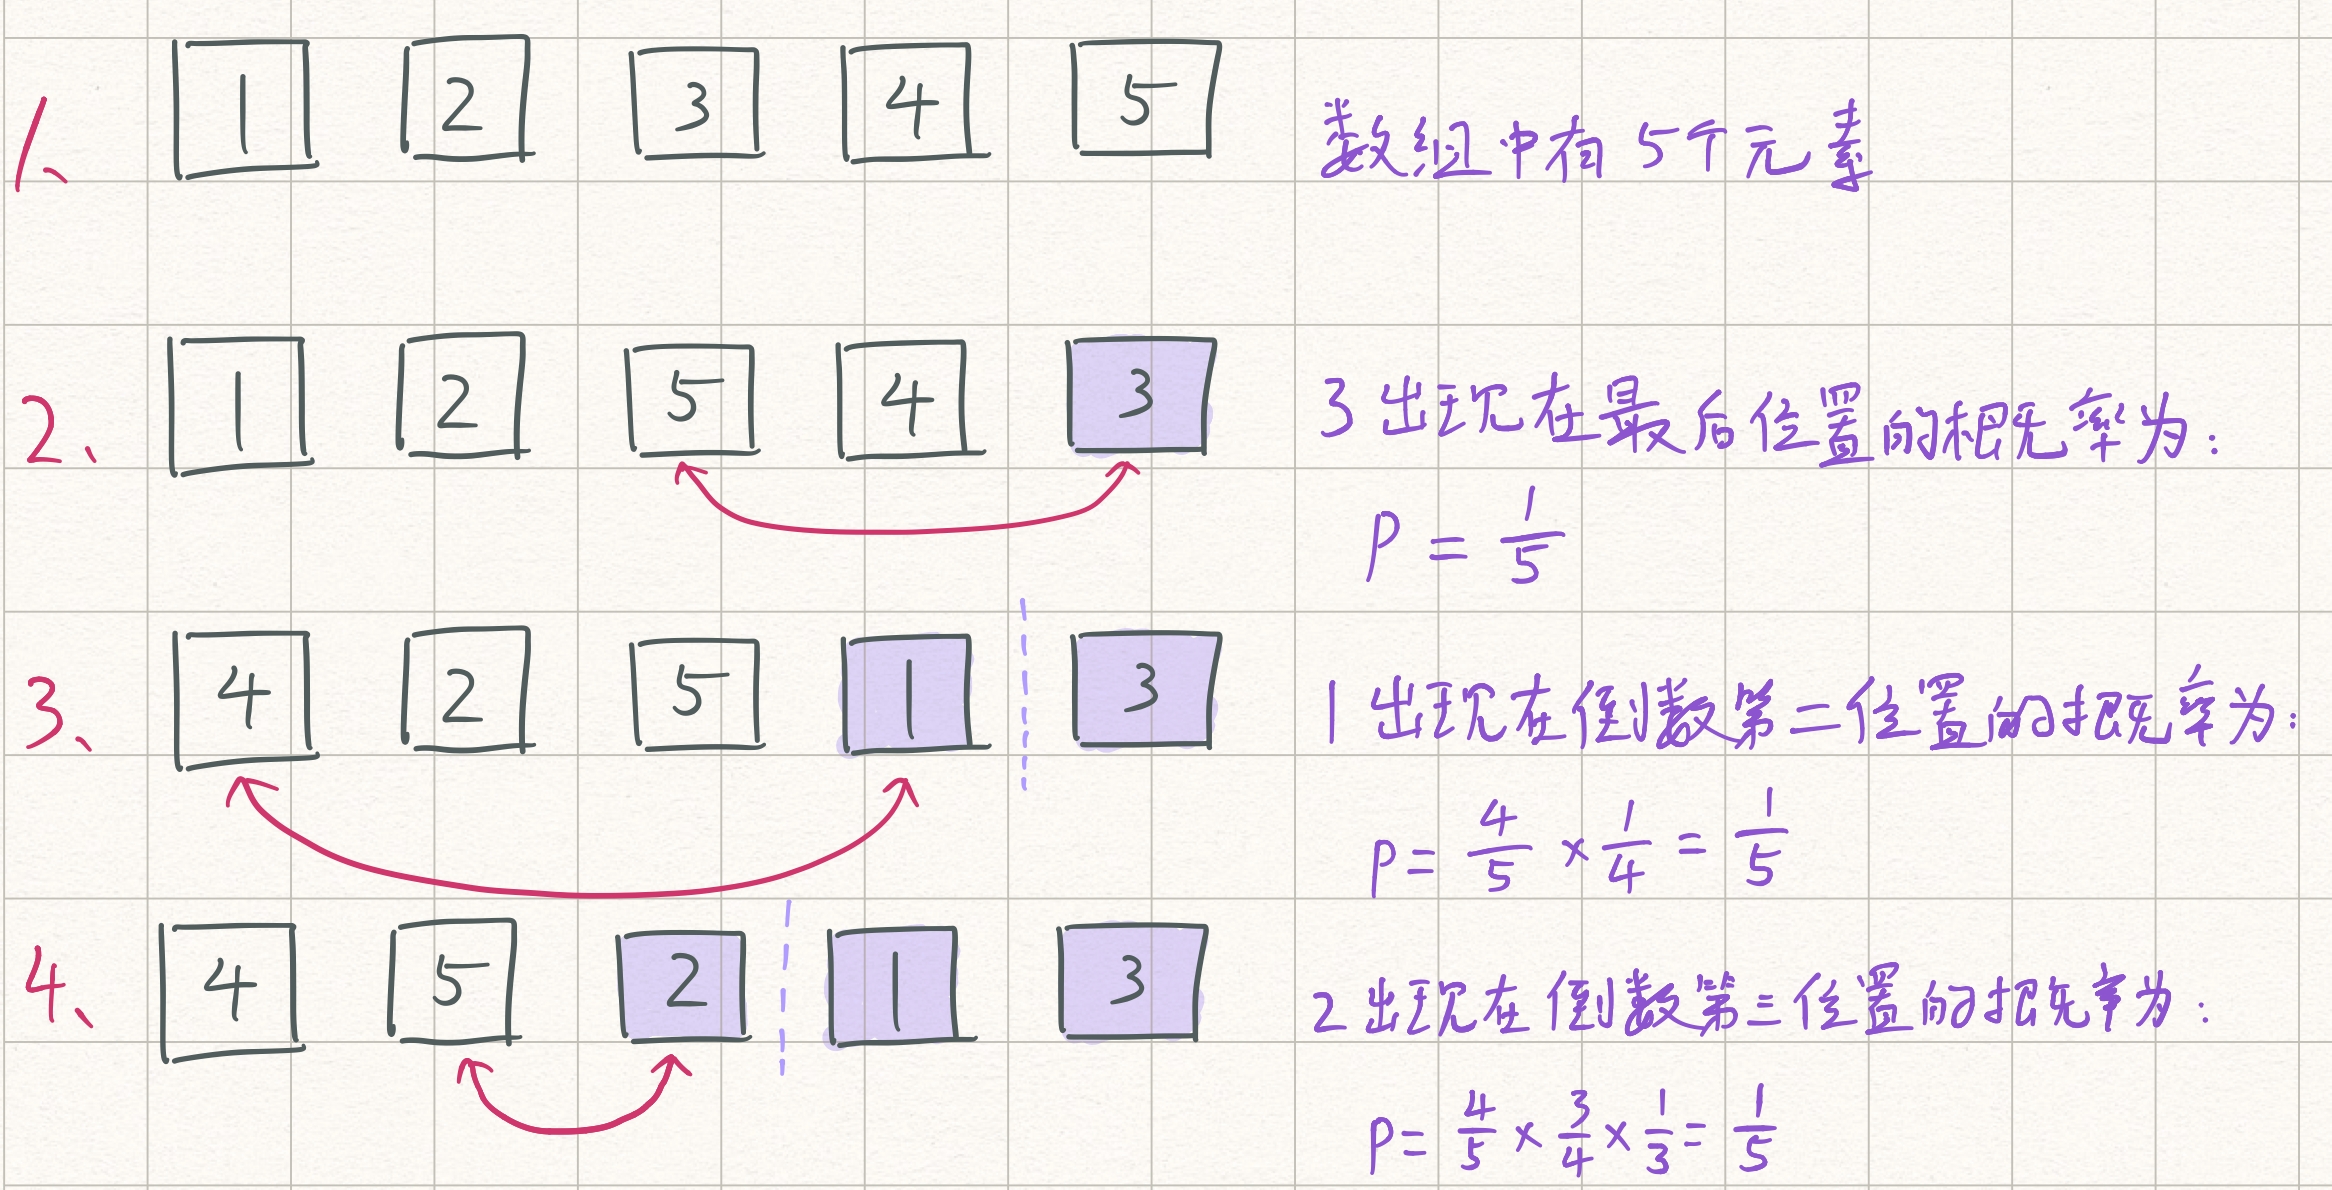 1、 1 2 3 4 5 数组中有 5个元素
2、 1 2 5 4 3 3 出现在最后位置的概率为：
P = 1/5
3、 4 2 5 1 3 1 出现在倒数第二位置的概率为：
P = 4/5 × 1/4 = 1/5
4、 4 5 2 1 3 2 出现在倒数第三位置的概率为：
P = 4/5 × 3/4 × 1/3 = 1/5